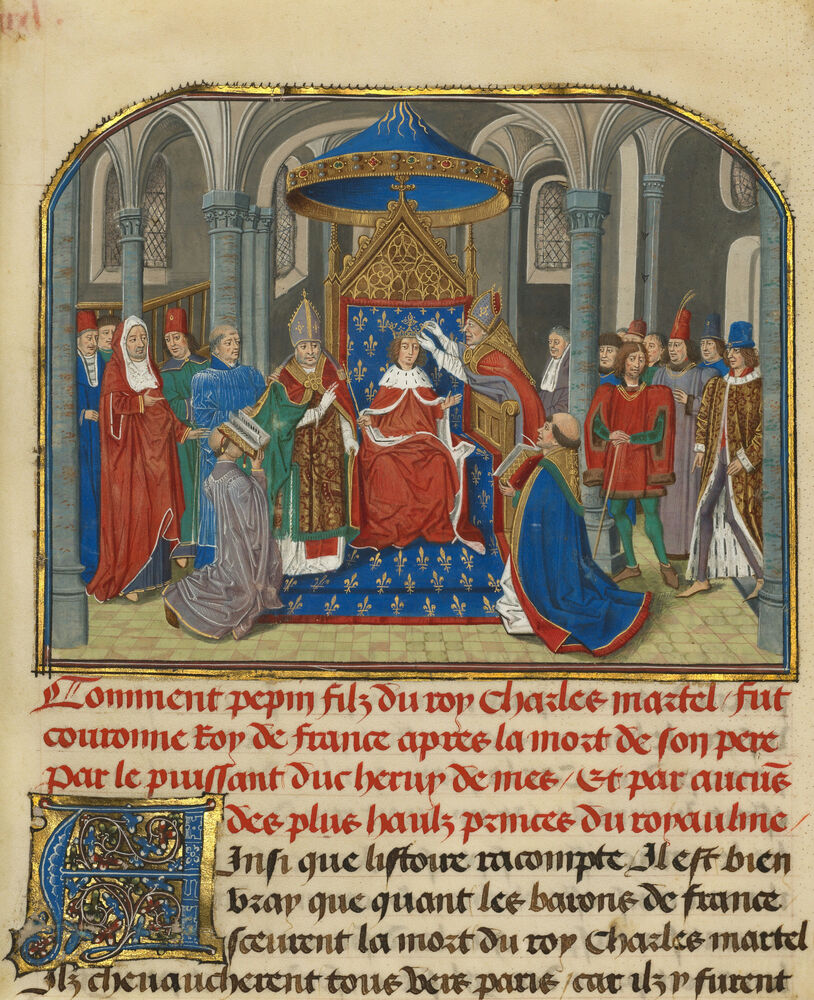 Comment pepin filz du roy Charles martel / fut
couronne Roy de france apres la mort de son pere
par le puissant duc heruy de mes / Et par aucuns
des plus haulz princes du royaulme /
Ainsi que listoire racompte / Il est bien
vray que quant les barons de france
sceurent la mort du roy Charles martel
Ilz cheuaucherent tous vers paris / car ilz y furent